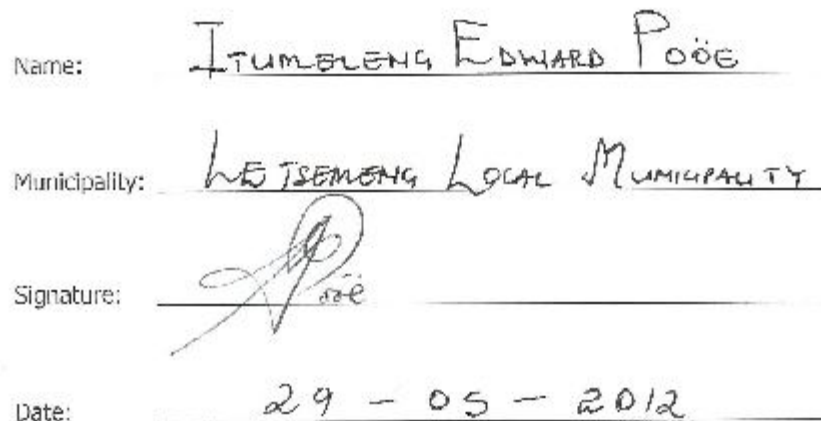 Name: ITUMELENG EDWARD POÖE
Municipality: LETSEMENG LOCAL MUNICIPALITY
Signature: Pööe
Date: 29 - 05 - 2012